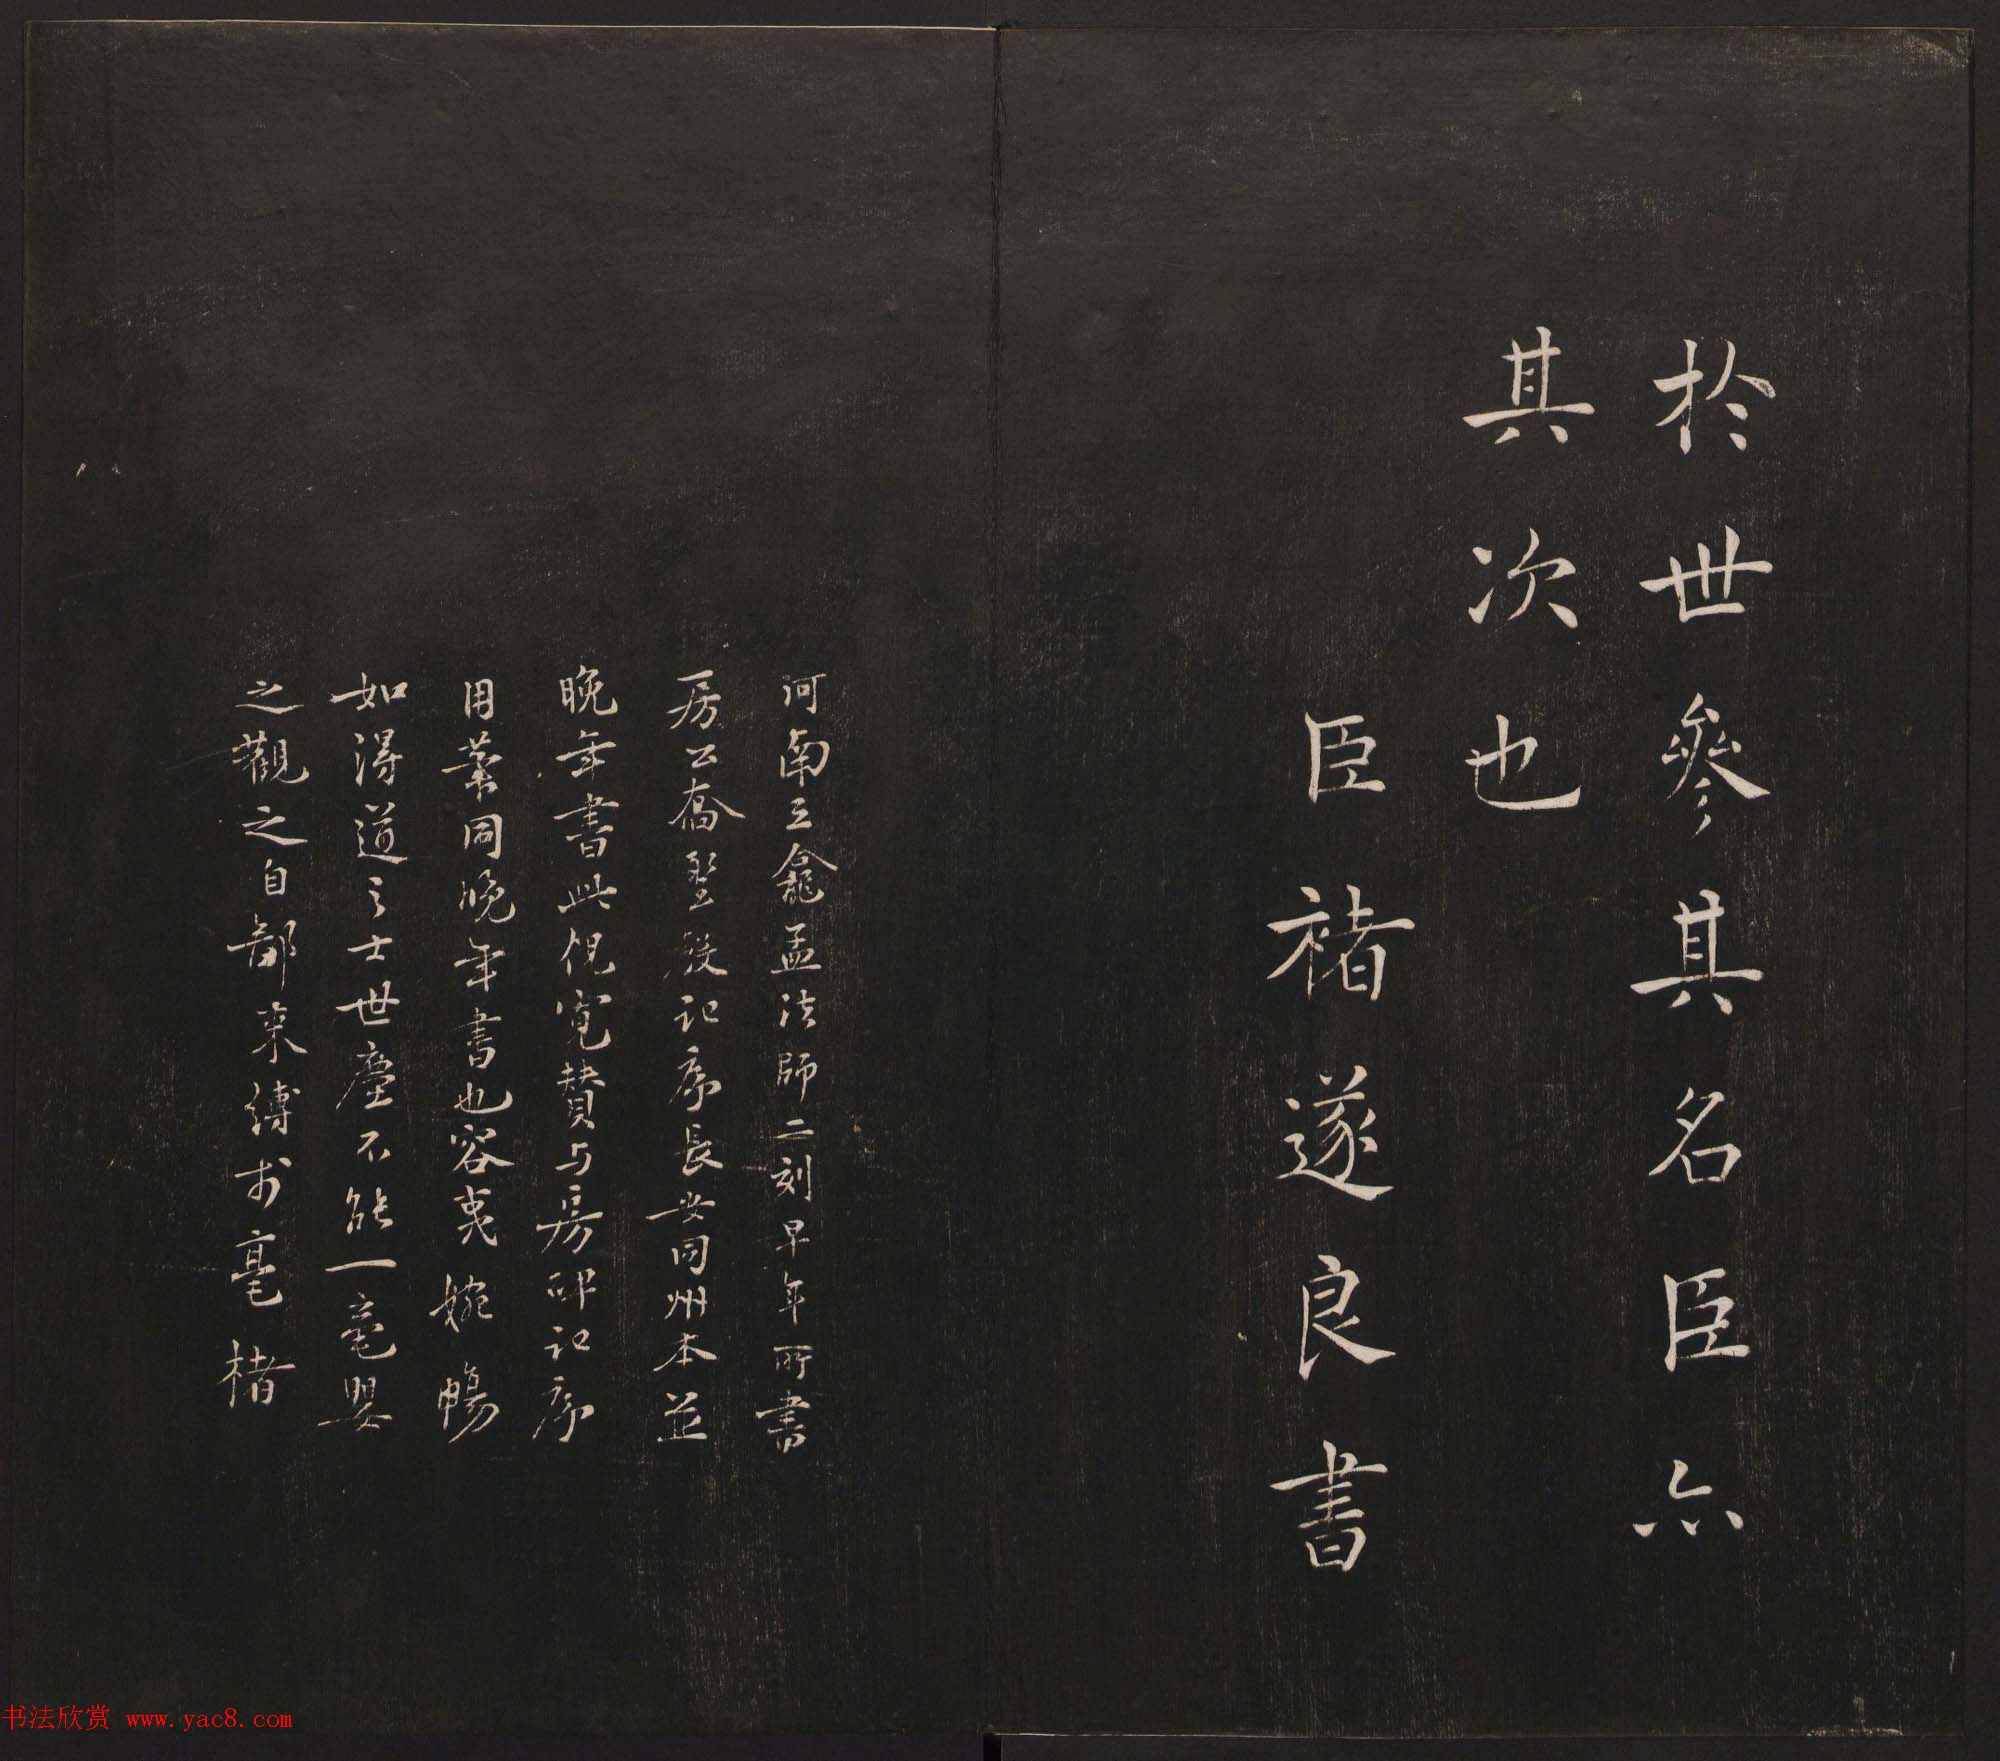 於世參其名臣亦
其次也
臣褚遂良書
河南三龕孟法師二刻早年所書
房公喬聖教記序長安同州本並
晚年書此倪寬贊与房碑記序
用筆同晚年書也容夷婉暢
如得道之士世塵不能一毫嬰
之觀之自鄙束縛於毫楮
书法欣赏 www.yac8.com